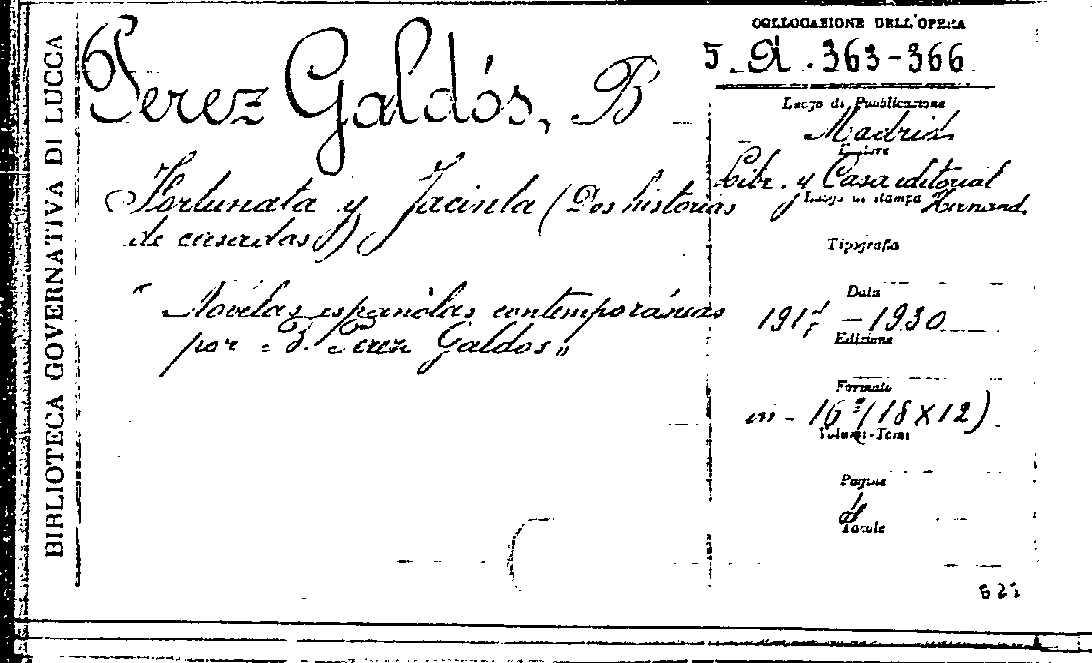 BIBLIOTECA GOVERNATIVA DI LUCCA
Perez Galdós, B
Fortunata y Jacinta (Dos historias
de casadas)
" Novelas españolas contemporáneas
por B. Perez Galdos "
COLLOCAZIONE DELL'OPERA
363-366
Luogo di Pubblicazione
Madrid
Editore
Libr. y Casa editorial
Luogo di stampa Hernand.
Tipografia
Data
1917 - 1930
Edizione
Formato
in - 16º (18 X 12)
Volumi-Tomi
Pagine
Tavole